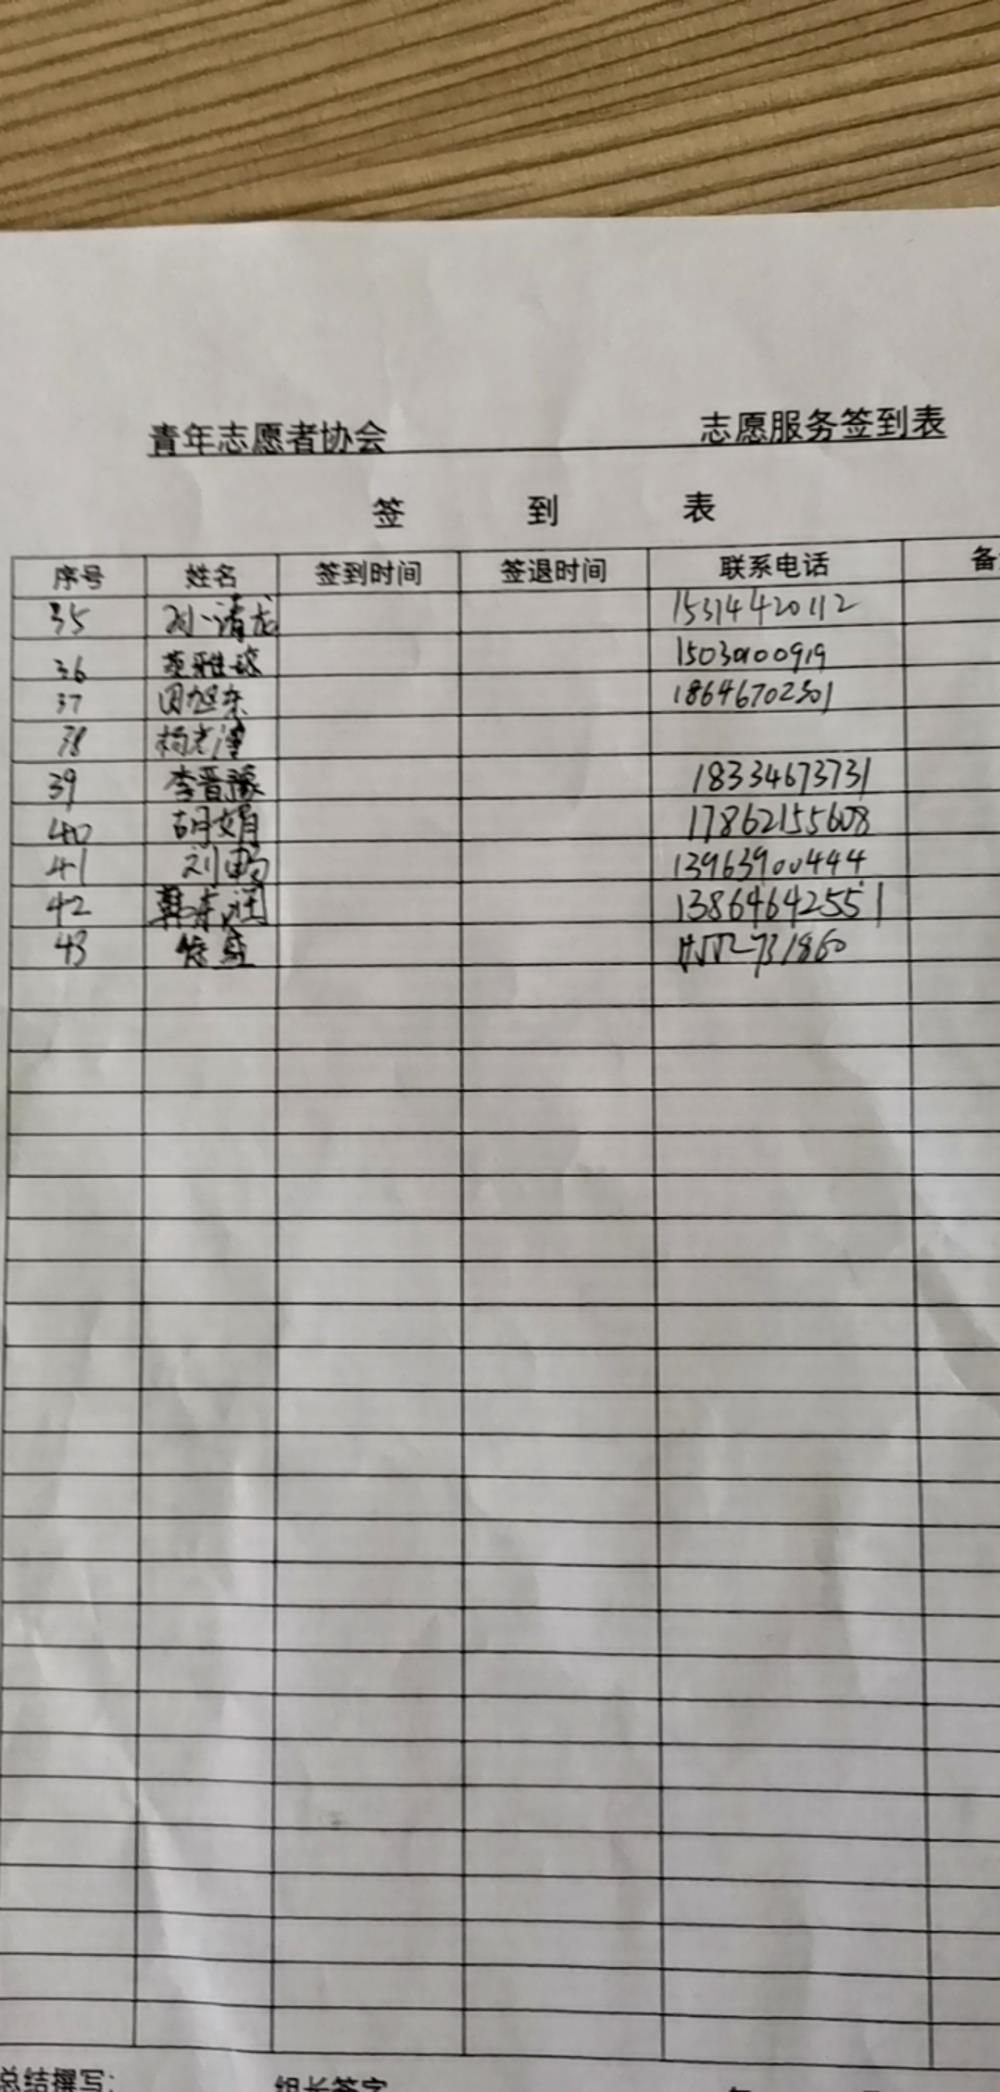 青年志愿者协会 志愿服务签到表
签 到 表
序号 姓名 签到时间 签退时间 联系电话 备
35 15314420112
36 15030100919
37 田旭东 18646702301
38
39 李晋豫 18334673731
40 胡娟 17862155608
41 刘畅 13963900444
42 13864642551
43
总结撰写: 组长签字